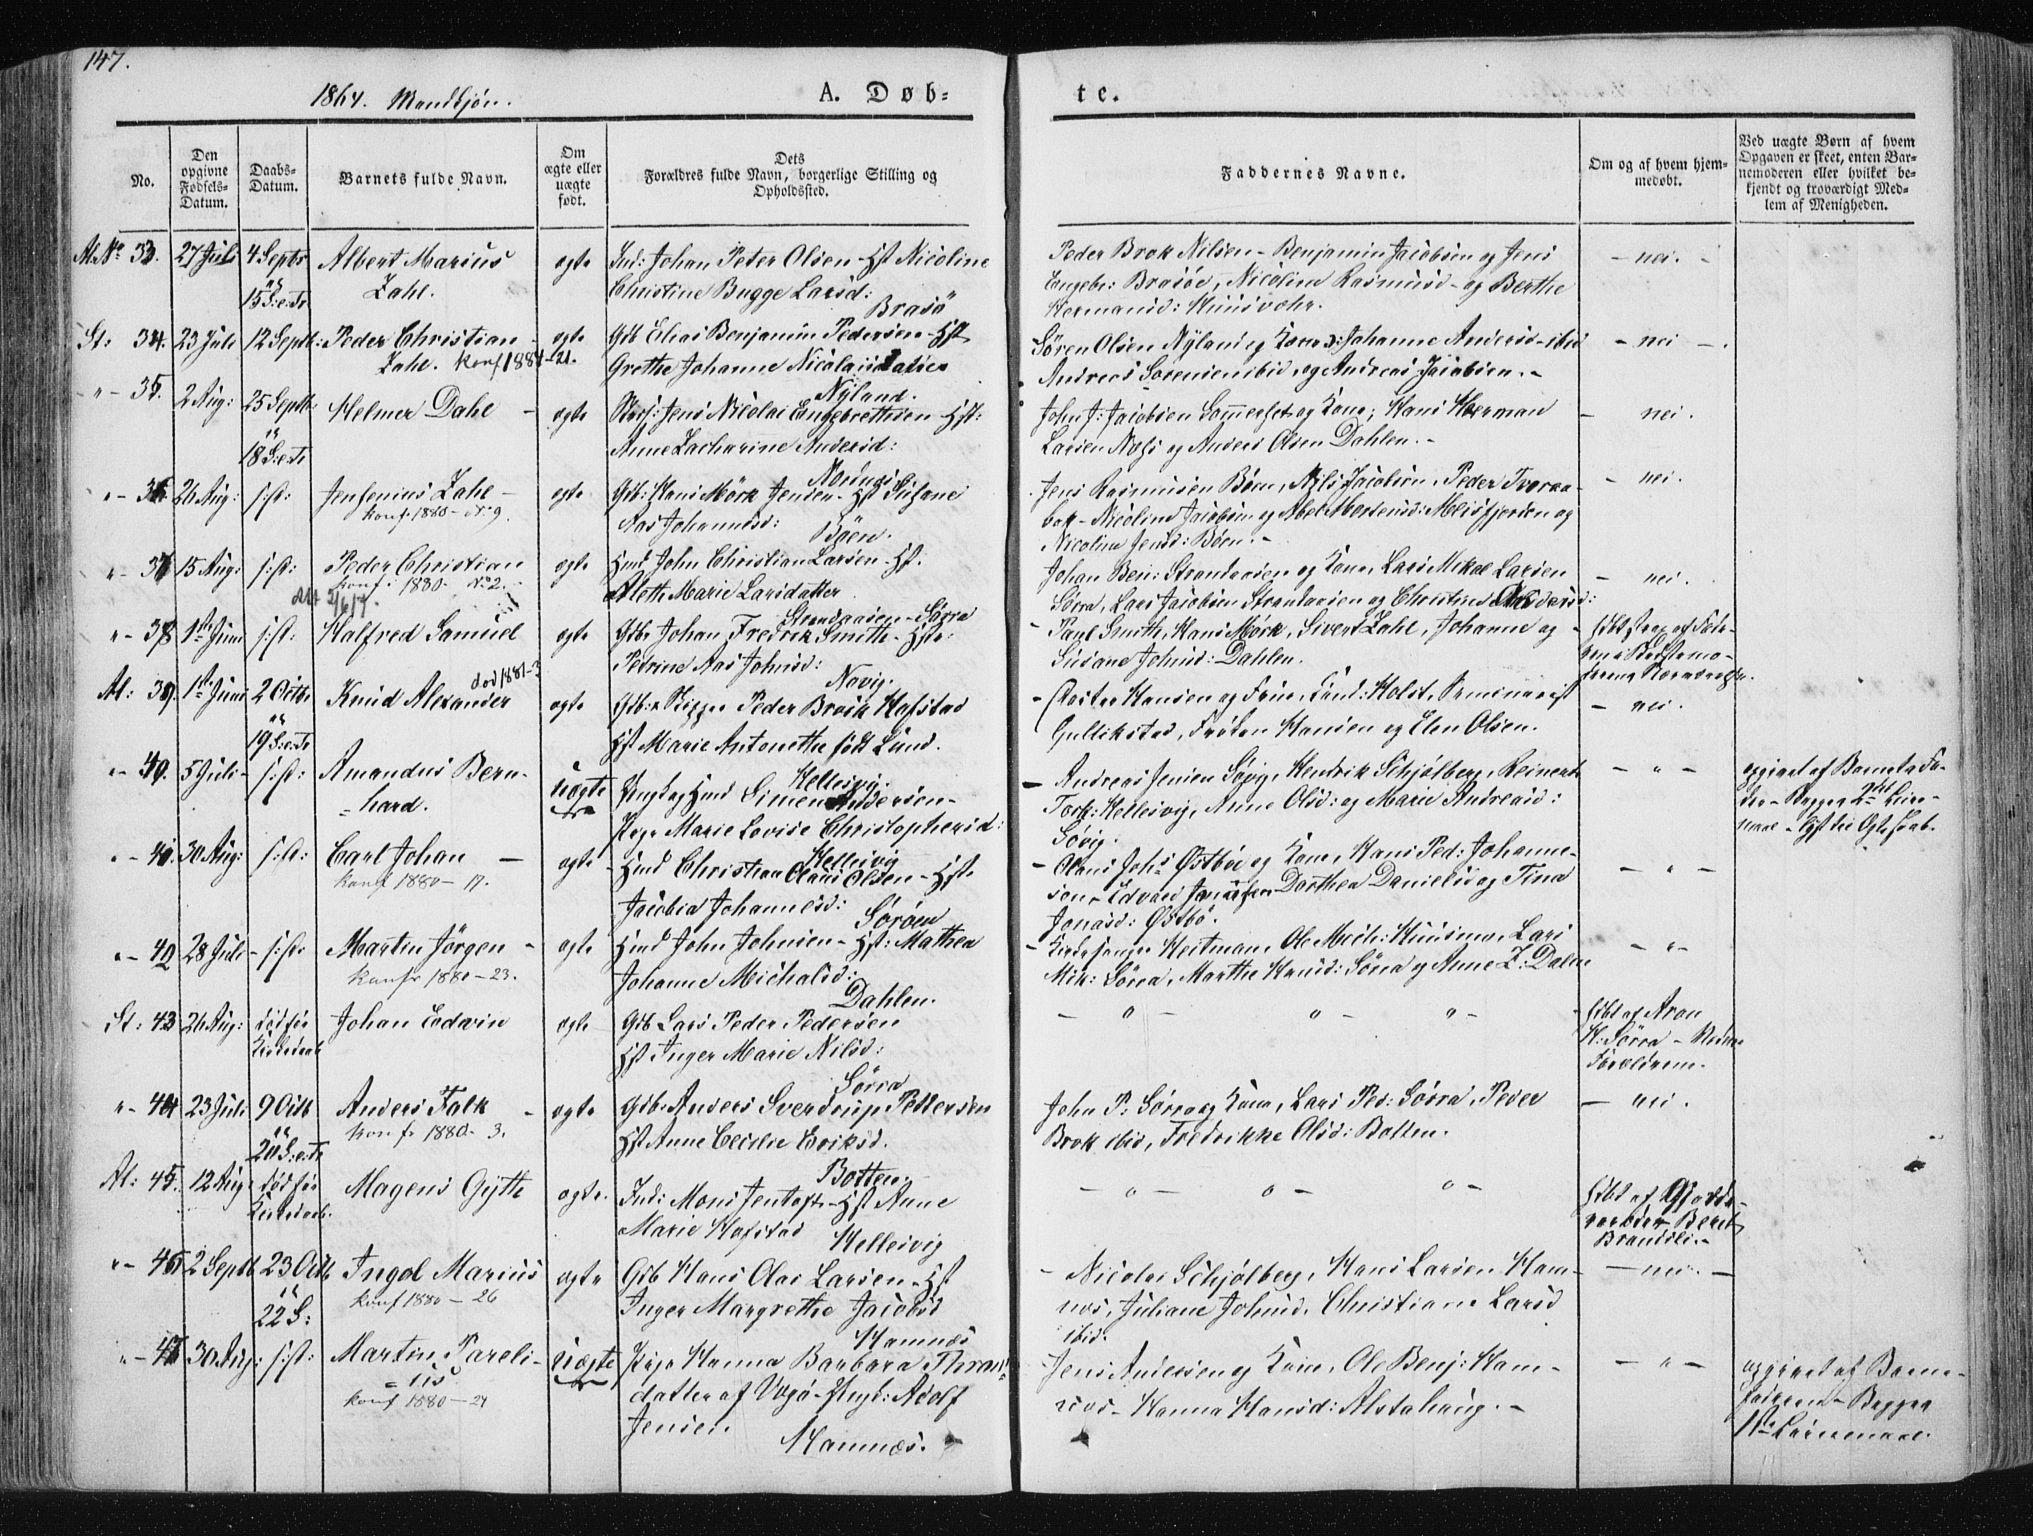 147.
1864. Mandkjøn.
A. Døb-
te.
No.
Den opgivne Fødsels-Datum.
Daabs-Datum.
Barnets fulde Navn.
Om ægte eller uægte født.
Dets Forældres fulde Navn, borgerlige Stilling og Opholdssted.
Faddernes Navne.
Om og af hvem hjem-medøbt.
Ved uægte Børn af hvem Opgaven er skeet, enten Bar-nemoderen eller hvilket be-kjendt og troværdigt Med-lem af Menigheden.
Al. No 33. 27 Juli 4 Septr
15 S: e. Tr
Albert Marius
Zahl.
ægte
Ind: Johan Peter Olsen - Hst Nicoline
Christine Bugge Larsd:
Brasö
Peder Brok Nilsen - Benjamin Jacobsen og Jens
Engebr: Brasöe, Nicolina Rasmusd - og Berthe
Hermansd:
- nei. -
St: 34. 23 Juli 12 Septb: Peder Christian -
Zahl. konf 1884-21.
ægte
Gdb Elias Benjamin Pedersen - Hst
Grethe Johanne Nicolaisdatter
Nyland.
Sören Olsen Nyland og Kone, Johanne Andersd - ibid
Andreas Sörensen ibid, og Andreas Jacobsen. -
- nei -.
" - 35. 2 Aug: 25 Septb:
18 S: e. Tr
Helmer Dahl -
ægte
Jens Nicolai Engebrethsen - Hst:
Anne Zacharine Andersd:
John J: Jacobsen og Kone, Hans Herman
Larsen og Anders Olsen Dahlen. -
- nei.
" - 36. 26 Aug: s: st:
Jensenius Zahl -
konf. 1880 - No 9.
ægte
Gdb: Hans Mörk Jensen - Hst Susane
Aas Johannesd:
Böen.
Jens Rasmusen Böen, Nils Jacobsen, Peder
- Nicoline Jacobsen og Abel Meisfjorden og
Nicoline Jensd: Böen. -
- nei.
" - 37. 15 Aug: s: st:
Peder Christian
konf. 1880 - No 2.
ægte
Hmd John Christian Larsen - Hst.
Aleth Marie Larsdatter
Strandaasen - Sörra
Johan Ben: Strandaasen og Kone, Lars Mikal Larsen
Sörra, Lars Jacobsen Strandaasen og Christine
- nei.
" - 38 1ste Juni s: st:
Halfred Samuel
ægte
Gdb: Johan Fredrik Smith - Hst:
Petrine Aas Johnsd:
Novig.
- Paul Smith, Hans Mörk, Sivert Zahl, Johanne og
Susane Johnsd: Dahlen.
Al: 39. 1ste Juni 2 Octb
19 S: e. Tr
død 1881-3
Knud Alexander
ægte
Gdb: & Skipper Peder Brock Hofstad
Hst Marie Antonethe född Lund.
Helleivig.
- Pastor Hansen og Frue, Cand: Holst, Seminarist
Gullikstad, Fröken Hansen og Elen Olsen.
- nei.
" - 40. 5 Juli - s: st:
Amandus Bern-
= hard.
uægte
Ungk og Hmd Simen Andersen -
Pige Marie Lovise Christophersd:
Helleivig
- Andreas Jensen Söyg, Hendrik Schjölberg, Reinert
Tork: Helleivig, Anne Olsd: og Marie Andreasd:
Sövig.
- " -
opgivet af Barnets Fa-
der - Begges 2det Leier-
maal -
" - 41. 30 Aug: s: st:
Carl Johan -
konf 1880 - 17.
ægte
Hmd Christian Olaus Olsen - Hst
Jacobia Johannesd:
Söröen
- Olaus Johs Østbö og Kone, Hans Ped: Johanne-
sen, Edvard Dorthea Danielsd og Tina
Jonasd: Østbö.
- " -
" - 42 28 Juli - s: st:
Martin Jörgen -
konfr 1880 - 23.
ægte
Hmd John Johnsen - Hst: Mathea
Johanne Michalsd:
Dahlen.
- Kirkesanger Heitman, Ole Mich: Huusmo, Lars
Mik: Sörra, Marthe Hansd: Sörra og Anne Z: Dalen
- " -
St: 43 26 Aug: död för
Kirkedaab
Johan Edvin
ægte
Gdb Lars Peder Pedersen
Hst Inger Marie Nilsd:
Sörra
- " - " - " -
hdbt af Aron
H: Sörra - Nedner
Forældrene.
" - 44 23 Juli 9 Octb
20 S: e. Tr
Anders Falk -
konfr 1880 - 3.
ægte
Gdb: Anders Sverdrup Pettersen
Hst Anne Cecilie Eriksd.
Botten.
John P: Sörra og Kone, Lars Ped: Sörra, Peder
Brok ibid, Fredrikke Olsd: Botten.
- nei.
Al: 45. 12 Aug: död för
Kirkedaab.
Magens Gÿtte
ægte.
Ind: Mons Jentoft - Hst Anne
Marie Hofstad
Helleivig
- " - " - " -
hdbt af Gjorde-
moder Berit
Brandsli. -
" - 46 2 Septb 23 Octb
22 S:
Ingol Marius
konf 1880 - 26
ægte
Gdb Hans Olai Larsen - Hst
Inger Margrethe Jacobsd
Hamnæs
- Nicolai Schjölberg, Hans Larsen Ham-
næs, Juliane Johnsd, Christiane Larsd
ibid.
- nei. -
" - 47 30 Aug: s: st:
Martin Pareli-
= us
konf 1880 - 24
uægte
Pige Hanna Barbara Thrond
datter af Vegö - Ungk: Adolf
Jensen
Hamnæs.
Jens Andersen og Kone, Ole Benj: Ham-
næs - Hanna Hansd: Alstahaug. -
- " -
opgivet af Barne-
faderen - Begges
1ste Leiermaal.